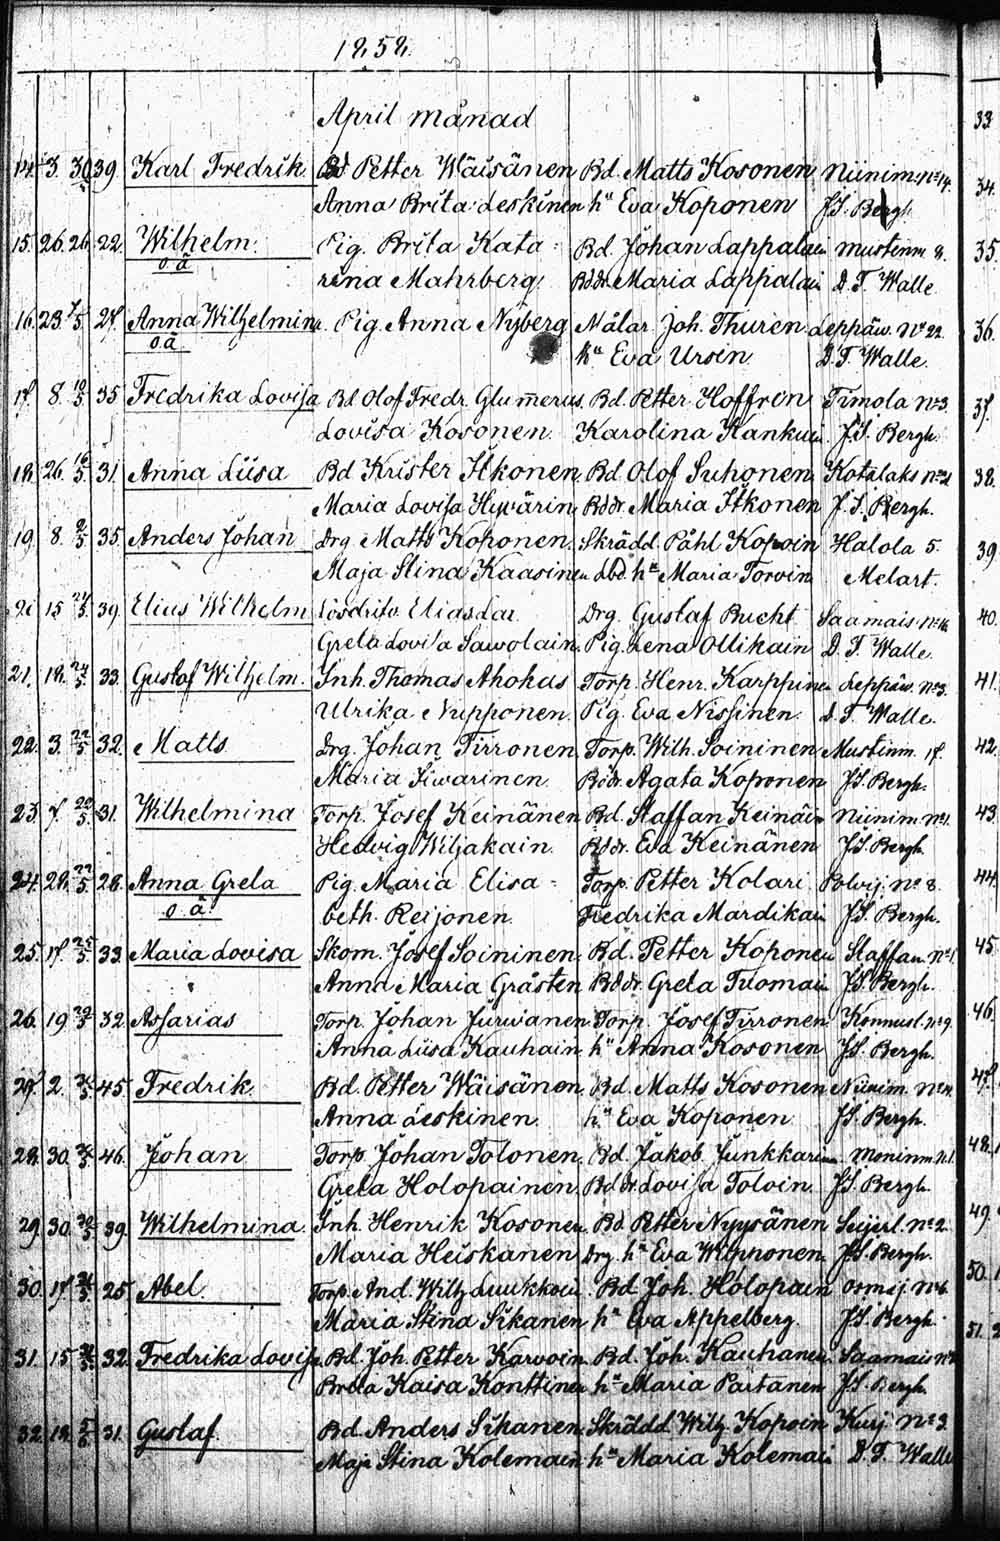 1858.
April månad
14. 3. 30/5 39. Karl Fredrik. Bd Petter Wäisänen Bd. Matts Kosonen Niinim: No 14.
Anna Brita Leskinen hu Eva Koponen J.S. Bergh
15. 26. 26. 22. Wilhelm. Pig. Brita Kata- Bd. Johan Lappalain Mustinm 8.
o.ä rina Mahrberg Bddr Maria Lappalain D. T. Walle
16. 23. 1/5 27. Anna Wilhelmina. Pig. Anna Nyberg Målar Joh. Thuren Leppäw. No 22.
o.ä hu Eva Ursin D. T. Walle.
17. 8. 10/5 35 Fredrika Lovisa Bd Olof Fredr. Glumerus. Bd. Petter Hoffren Timola No 3.
Lovisa Kosonen. Karolina Kankuin J.S. Bergh.
18. 26. 16/5 31. Anna Liisa Bd Krister Itkonen. Bd. Olof Suhonen Kotalaks No 21
Maria Lovisa Hywärin. Bddr. Maria Itkonen J.S. Bergh.
19. 8. 2/5 35 Anders Johan Drg. Matts Koponen. Skrädd. Påhl Kopoin Halola 5.
Maja Stina Kaasinen Lbd. hu Maria Torvin Melart.
15 39. Elias Wilhelm Lösdrifv. Elias Lar Drg. Gustaf Bucht Saamais. No 16.
Greta Lovisa Sawolain. Pig. Lena Ollikain D. T. Walle.
21. 18. 24/5 33. Gustaf Wilhelm. Inh. Thomas Ahokas Torp. Henr. Karppinen Leppäw. No 3.
Ulrika Nupponen. Pig. Eva Nissinen. D. T. Walle.
22. 3. 22/5 32. Matts Drg. Johan Tirronen. Torp. Wilh. Soininen Mustinm. 17.
Maria Siwarinen. Bddr. Agata Koponen J.S. Bergh.
23. 7. 22/5 31. Wilhelmina Torp. Josef Keinänen Bd. Staffan Keinäin Niinim. No 1.
Hedvig Wiljakain. Bddr. Eva Keinänen J.S. Bergh.
24. 28. 22/5 28. Anna Greta Pig. Maria Elisa- Torp. Petter Kolari Polvij. No 8.
o.ä. beth. Reijonen. Fredrika Mardikain J.S. Bergh.
25. 17. 25/5 33. Maria Lovisa Skom. Josef Soininen. Bd. Petter Koponen Staffan. No 1.
Anna Maria Gråsten Bddr. Greta Tuomain J.S. Bergh.
26. 19 29/5 32. Assarias Torp. Johan Jurwanen Torp. Josef Tirronen Konnusl. No 9.
Anna Liisa Kauhain hu Anna Kosonen J.S. Bergh.
27. 2. 45. Fredrik Bd. Petter Wäisänen. Bd. Matts Kosonen Niinim. No 14.
Anna Leskinen. hu Eva Koponen J.S. Bergh.
28. 30. 46. Johan Torp. Johan Tolonen. Bd. Jakob Junkkarin. Moninm. No 1.
Greta Holopainen. Bddr. Lovisa Toloin J.S. Bergh.
29. 30. 30/5 39. Wilhelmina. Inh. Henrik Kosonen. Bd Petter Nyysänen Seijerl. No 2.
Maria Heiskanen Drg. hu Eva Wepponen. J.S. Bergh.
30. 17 25 Abel. Torp. And. Wilh. Luukkoin Bd. Joh. Holopain Ormäj. No 6.
Maria Stina Sikanen hu Eva Appelberg. J.S. Bergh.
31. 15 32. Fredrika Lovisa Bd. Joh. Petter Karvoin. Bd. Joh. Kauhanen Saamais
Brita Kaisa Konttinen hu Maria Partanen J.S. Bergh.
32. 18. 5/6 31. Gustaf Bd Anders Sihanen Skrädd. Wilh. Kopoin Kurj. No 3.
Maja Stina Kolemain hu Maria Kolemain D. T. Walle
33.
34.
35.
36.
37.
38.
39.
40.
41.
42.
43.
44.
45.
46.
47.
48.
49.
50.
51.